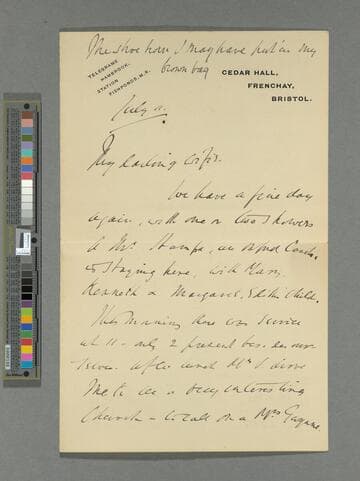 The shoe horn I may have put in my
brown bag
TELEGRAMS
HAMBROOK.
STATION
FISHPONDS, M.R.
CEDAR HALL,
FRENCHAY,
BRISTOL.
July 11.
My darling Wife.
We have a fine day
again, with one or two showers
A Mr.
is staying here, with Mary,
Kenneth & Margaret, Edith's child.
This morning there was service
at 11 - only 2 present besides our-
selves. After lunch Mr drove
me to see a very interesting
Church - to call on a Mrs